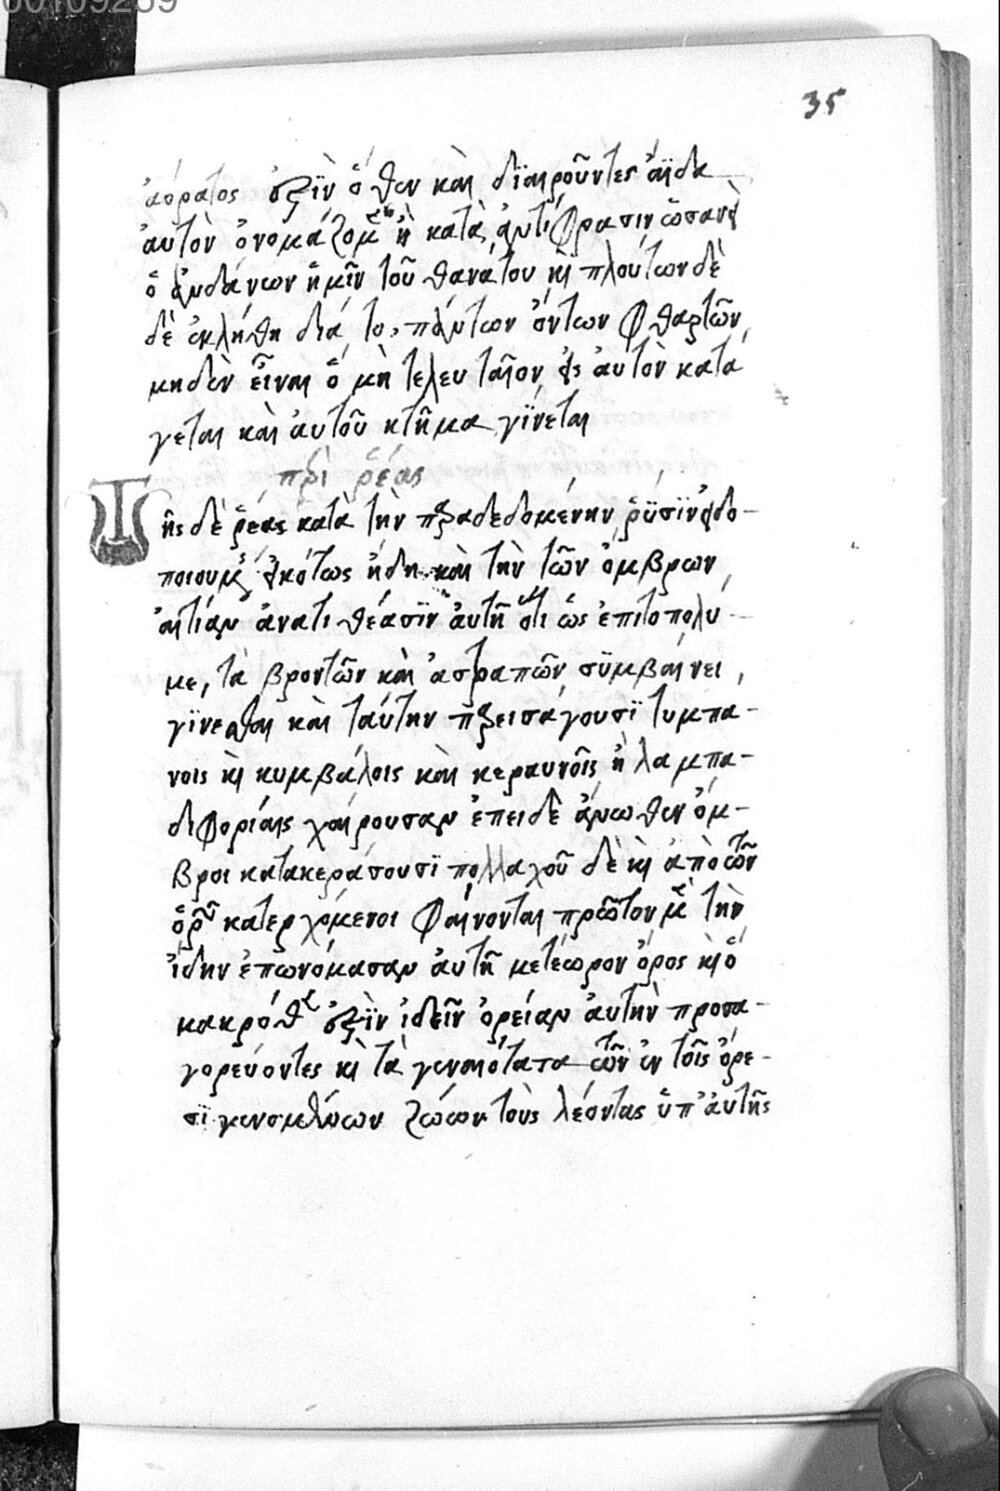 00109259
35
ἀόρατος ἐστϊν ὅθεν καὶ διαιροῦντες ἀΐδα
ἀυτὸν ὀνομάζομεν ἢ κατὰ ἀντίφρασιν ὡσανεὶ
ὁ ἁνδάνων ἡμῖν τοῦ θανάτου κὶ πλούτων δὲ
δὲ ἐκλήθη διά το, πάντων ὄντων φθαρτῶν,
μηδὲν εἶναι ὅ μὴ τελευταῖον εἰς ἀυτὸν κατά
γεται καὶ ἀυτοῦ κτῆμα γίνεται
περὶ ῥέας
Τῆς δὲ ῥέας κατὰ τὴν παραδεδομένην ῥύσϊν εἰδο-
ποιουμένης εἰκότως ἤδη καὶ τὴν τῶν ὄμβρων,
ἀιτίαν ἀνατιθέασϊν ἀυτῆ ὅτι ὡς ἐπιτοπολύ
με, τὰ βροντῶν καὶ ἀστραπῶν σϋμβαίνει,
γϊνεσθαι καὶ ταύτην παρεισάγουσϊ τυμπα-
νοις κὶ κυμβάλοις καὶ κεραυνοῖς ἢ λαμπα-
διφορίαις χαίρουσαν ἐπειδὲ ἄνωθεν ὄμ-
βροι κατακεράσουσϊ πολλαχοῦ δὲ κὶ ἀπὸ τῶν
ὀρῶν κατερχόμενοι φαίνονται πρῶτον μὲν τὴν
ἴδην ἐπωνόμασαν ἀυτῆ μετέωρον ὄρος κὶ ὅ
μακρόθεν ἐστϊν ἰδεῖν ὀρείαν ἀυτὴν προσα-
γορεύοντες κὶ τὰ γενναιότατα τῶν ἐν τοῖς ὄρε-
σϊ γενομένων ζώων τοὺς λέοντας ὑπ' ἀυτῆς